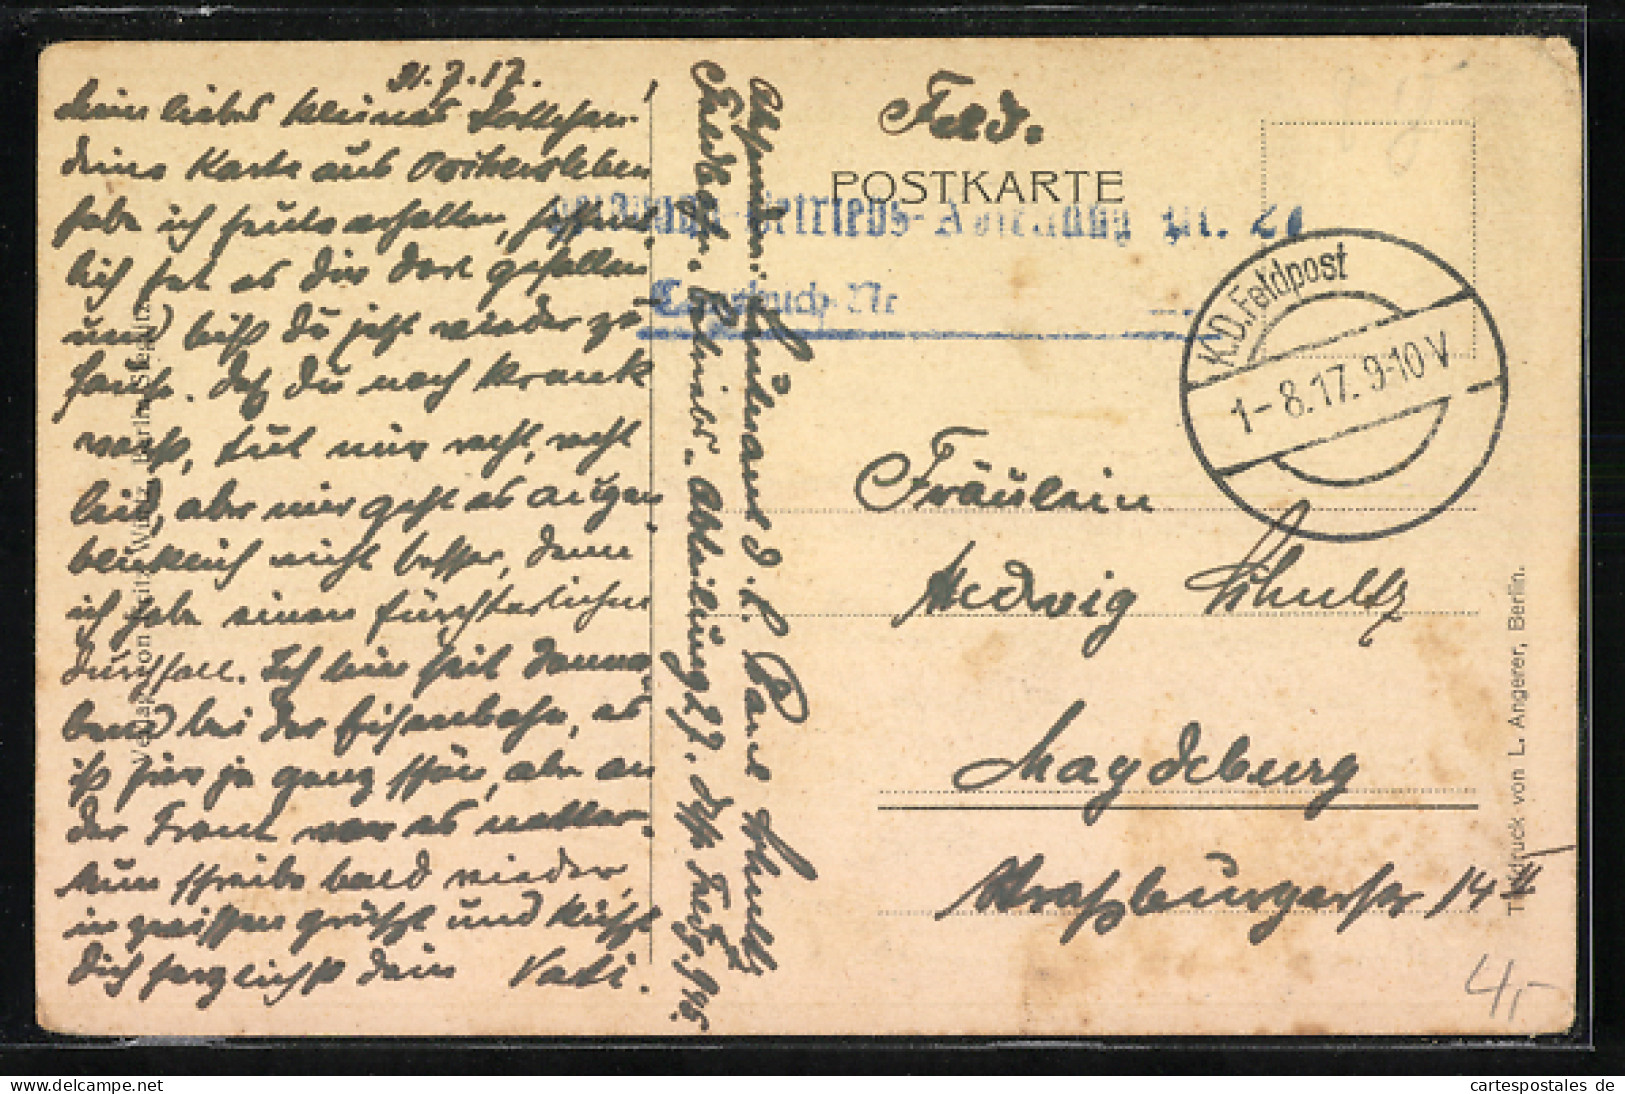 31.7.17.
Mein liebes kleines Lottchen!
Deine Karte aus Oschersleben
habe ich heute erhalten, hoffent-
lich hat es dir dort gefallen
und bist du jetzt wieder zu
Hause. Daß du noch krank
warst, tut mir recht, recht
leid, aber mir geht es augen
blicklich nicht besser, denn
ich habe einen fürchterlichen
Durchfall. Ich bin seit
bei der Eisenbahn, es
ist hier ja ganz schön, aber an
der Front war es netter.
Nun schreibe bald wieder,
inzwischen grüßt und küßt
Dich herzlichst dein Vati.
Absender: Leutnant d. L. Schultz
Betriebs-Abteilung 27.
Feld-
POSTKARTE
Betriebs-Abteilung Nr. 27
Tagebuch-Nr
K.D. Feldpost
1-8.17. 9-10 V
Fräulein
Hedwig Schultz
Magdeburg
Straßburgerstr. 14 III
4,-
Verlag von Berlin-Steglitz
Tiefdruck von L. Angerer, Berlin.
cartespostales de